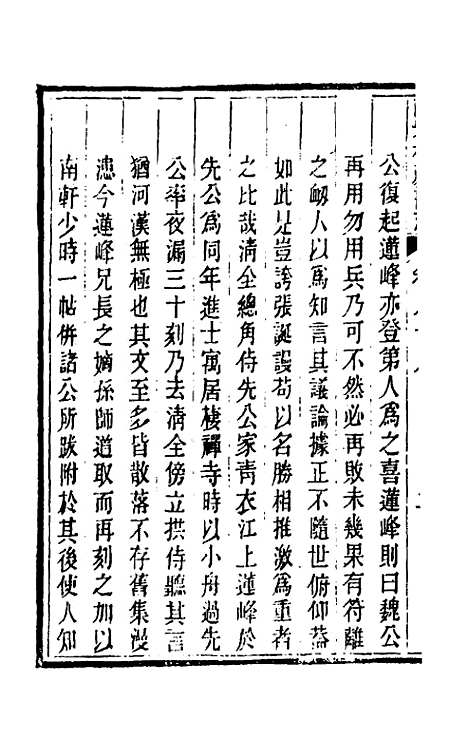 公復起蓮峰亦登第人爲之喜蓮峰則曰魏公
再用勿用兵乃可不然必再敗未幾果有符離
之衂人以爲知言其議論據正不隨世俯仰葢
如此是豈誇張誕謾苟以名勝相推激爲重者
之比哉清全總角侍先公家靑衣江上蓮峰於
先公爲同年進士寓居棲禪寺時以小舟過先
公率夜漏三十刻乃去清全傍立拱侍聽其言
猶河漢無極也其文至多皆散落不存舊集漫
漶今蓮峰兄長之嫡孫師道取而再刻之加以
南軒少時一帖併諸公所跋附於其後使人知